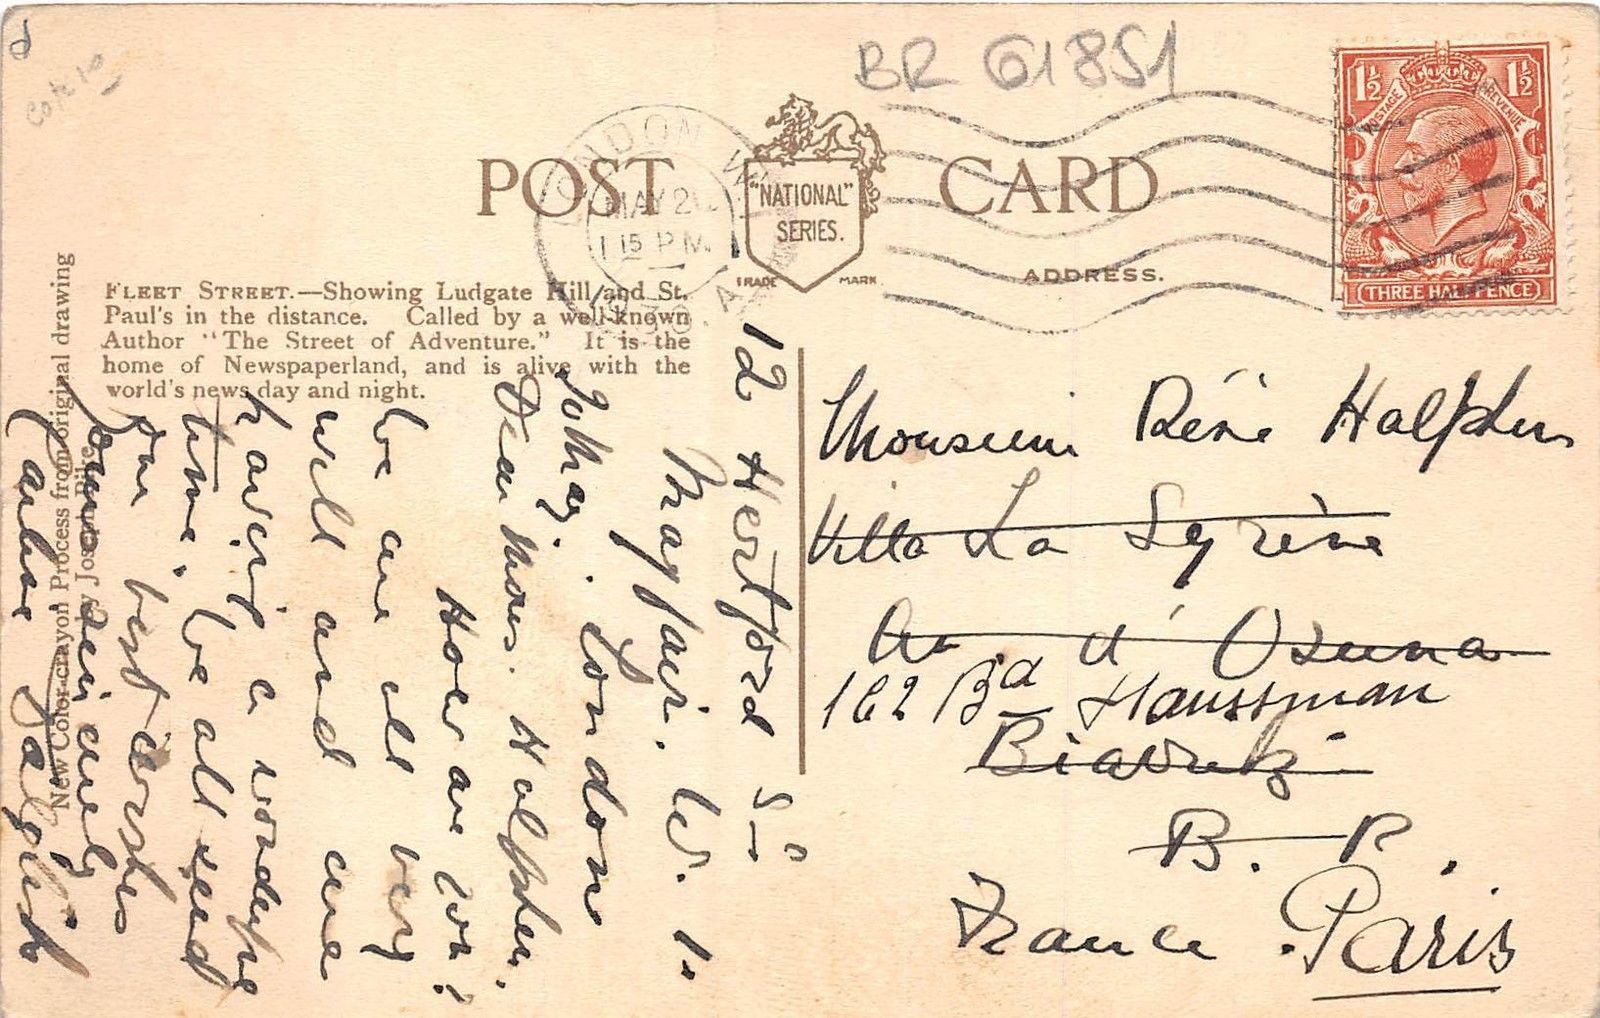 BR 61851
POST CARD
"NATIONAL"
SERIES.
TRADE MARK
ADDRESS.
LONDON W.1
MAY 2
1 15 PM
1½ 1½
POSTAGE REVENUE
THREE HALFPENCE
FLEET STREET.—Showing Ludgate Hill and St.
Paul's in the distance. Called by a well-known
Author "The Street of Adventure." It is the
home of Newspaperland, and is alive with the
world's news day and night.
New Color-crayon Process from original drawing
by Joseph Pike.
12 Hertford St
Mayfair. W. 1.
London
Dear Mons. Halphen.
How are you?
We are all very
well and are
having a
time. We all send
our best wishes
Yours sincerely
Monsieur René Halphen
Villa La Syrène
Av d'Osuna
162 Bd Haussman
Biarritz
B. P.
France. Paris